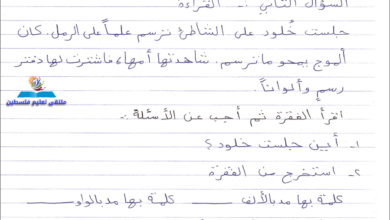 السؤال الثاني :- القراءة
جلست خلود على الشاطئ ترسم علماً على الرمل. كان
ألموج يمحو ما ترسم. شاهدتها أمها، فاشترت لها دفتر
رسمٍ وألواناً.
اقرأ الفقرة ثم أجب عن الأسئلة :-
١- أين جلست خلود؟
٢- استخرج من الفقرة
كلمة بها مد بالألف ____ كلمة بها مد بالواو ____
ملتقى تعليم فلسطين